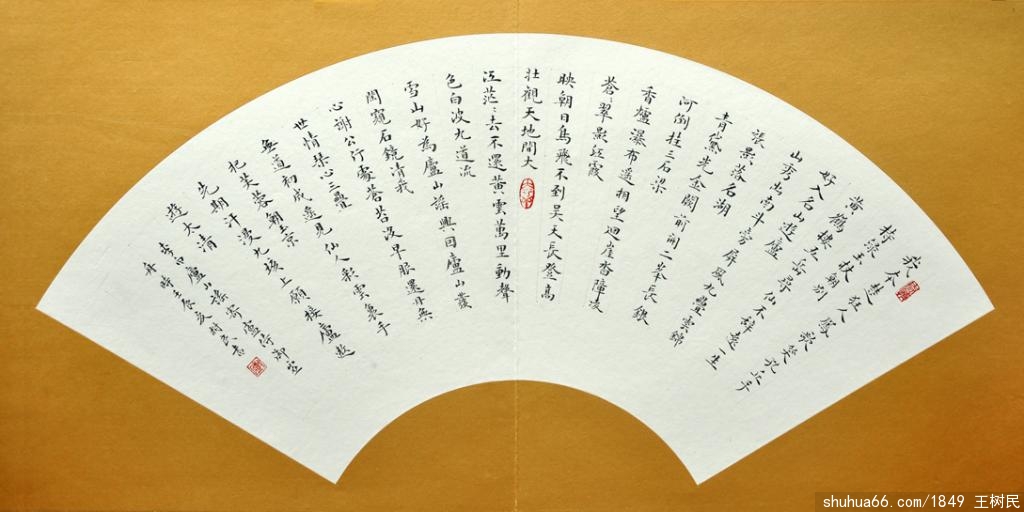 我本楚狂人鳳歌笑孔丘手
持綠玉杖朝別
黃鶴樓五岳尋仙不辭遠一生
好入名山遊廬
山秀出南斗旁屏風九疊雲錦
張影落名湖
青黛光金闕前開二峯長銀
河倒挂三石梁
香爐瀑布遙相望迴崖沓障凌
蒼〻翠影紅霞
映朝日鳥飛不到吳天長登高
壯觀天地間大
江茫〻去不還黃雲萬里動聲
色白波九道流
雪山好為廬山謠興因廬山發
閑窺石鏡清我
心謝公行處蒼苔沒早服還丹無
世情琴心三疊
無道初成遙見仙人彩雲裏手
把芙蓉朝玉京
先期汗漫九垓上願接廬敖
遊太清
李白廬山謠寄盧侍御虛
舟時壬辰夏樹民書
shuhua66.com/1849 王树民